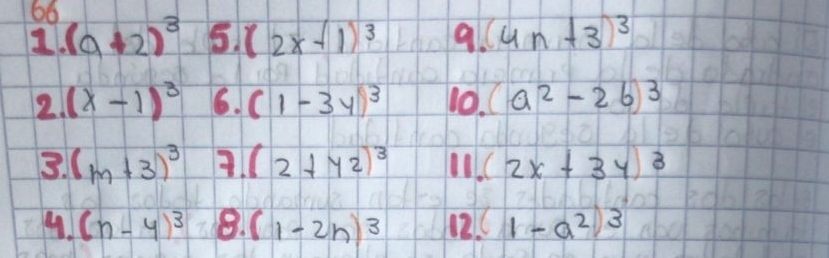 66
1.(a+2)³ 5.(2x+1)³ 9.(4n+3)³
2.(x-1)³ 6.(1-3y)³ 10.(a²-2b)³
3.(m+3)³ 7.(2+y2)³ 11.(2x+3y)³
4.(n-4)³ 8.(1-2n)³ 12.(1-a²)³